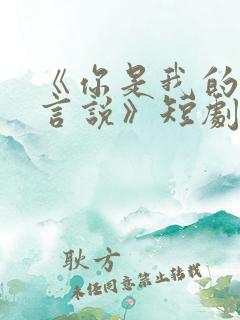 《你是我的
言說》短劇
耿方
未经同意禁止转载